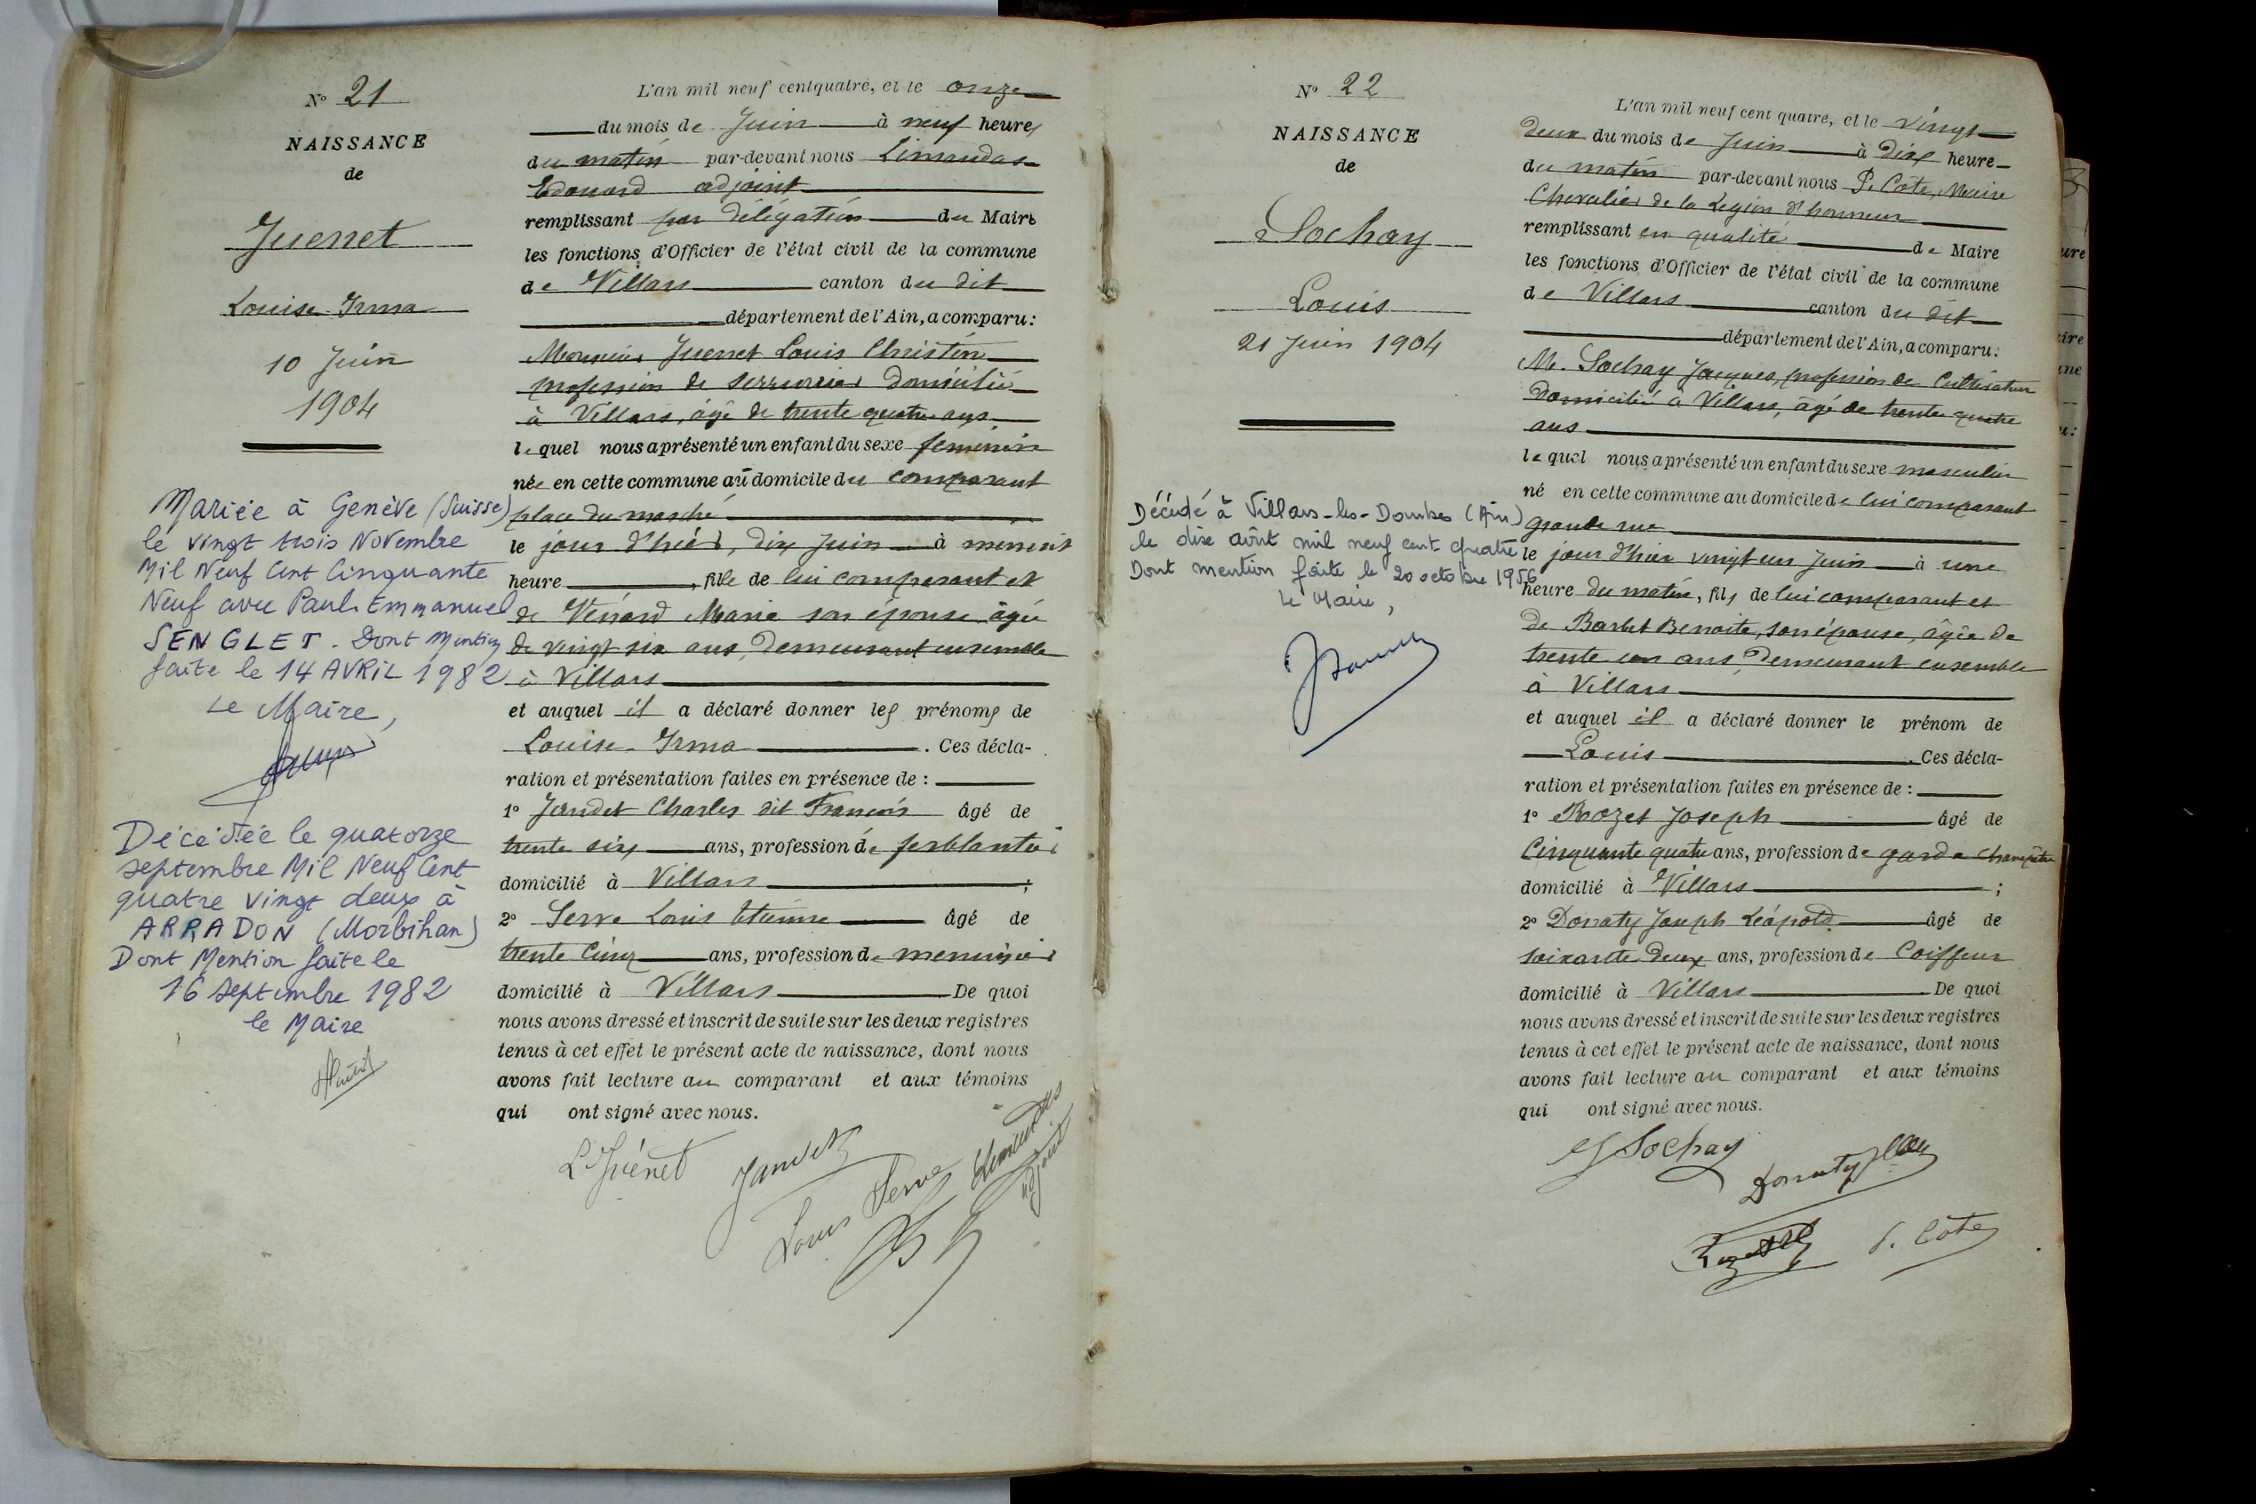 N° 21
NAISSANCE
de
Juenet
Louise Irma
10 Juin
1904
Mariée à Genève (Suisse)
le vingt trois Novembre
Mil Neuf Cent Cinquante
Neuf avec Paul Emmanuel
SENGLET. Dont Mention
faite le 14 AVRIL 1982
Le Maire,
Décédée le quatorze
septembre Mil Neuf Cent
quatre vingt deux à
ARRADON (Morbihan)
Dont Mention faite le
16 septembre 1982
le Maire
L'an mil neuf cent quatre, et le onze
du mois de Juin à neuf heures
du matin par-devant nous Limandas
Edouard adjoint
remplissant par délégation du Maire
les fonctions d'Officier de l'état civil de la commune
de Villars canton du dit
département de l'Ain, a comparu:
Monsieur Juenet Louis Christin
profession de serrurier domicilié
à Villars, âgé de trente quatre ans
lequel nous a présenté un enfant du sexe feminin
née en cette commune au domicile du comparant
place du marché
le jour d'hier, dix Juin à minuit
heure, fille de lui comparant et
de Vénard Marie son épouse âgée
de vingt six ans, demeurant ensemble
à Villars
et auquel il a déclaré donner les prénoms de
Louise Irma. Ces décla-
ration et présentation faites en présence de :
1° Jandet Charles dit François âgé de
trente six ans, profession de ferblantier
domicilié à Villars ;
2° Serve Louis Etienne âgé de
trente cinq ans, profession de menuisier
domicilié à Villars De quoi
nous avons dressé et inscrit de suite sur les deux registres
tenus à cet effet le présent acte de naissance, dont nous
avons fait lecture au comparant et aux témoins
qui ont signé avec nous.
L Juénet Jandet
Louis Serve Limandas
adjoint
N° 22
NAISSANCE
de
Sochay
Louis
21 Juin 1904
Décédé à Villars-les-Dombes (Ain)
le dixe août mil neuf cent quatre
Dont mention faite le 20 octobre 1956
Le Maire,
L'an mil neuf cent quatre, et le vingt
deux du mois de Juin à dix heure
du matin par-devant nous P. Côte, Maire
Chevalier de la Légion d'honneur
remplissant en qualité de Maire
les fonctions d'Officier de l'état civil de la commune
de Villars canton du dit
département de l'Ain, a comparu:
Mr. Sochay Jacques, profession de Cultivateur
Domicilié à Villars, âgé de trente quatre
ans
lequel nous a présenté un enfant du sexe masculin
né en cette commune au domicile de lui comparant
grande rue
le jour d'hier vingt un Juin à une
heure du matin, fils de lui comparant et
de Barbet Benoite, son épouse, âgée de
trente un ans demeurant ensemble
à Villars
et auquel il a déclaré donner le prénom de
Louis. Ces décla-
ration et présentation faites en présence de :
1° Rozet Joseph âgé de
Cinquante quatre ans, profession de garde champêtre
domicilié à Villars ;
2° Donaty Joseph Léopold âgé de
soixante deux ans, profession de Coiffeur
domicilié à Villars De quoi
nous avons dressé et inscrit de suite sur les deux registres
tenus à cet effet le présent acte de naissance, dont nous
avons fait lecture au comparant et aux témoins
qui ont signé avec nous.
J Sochay
Donaty
Rozet P. Côte